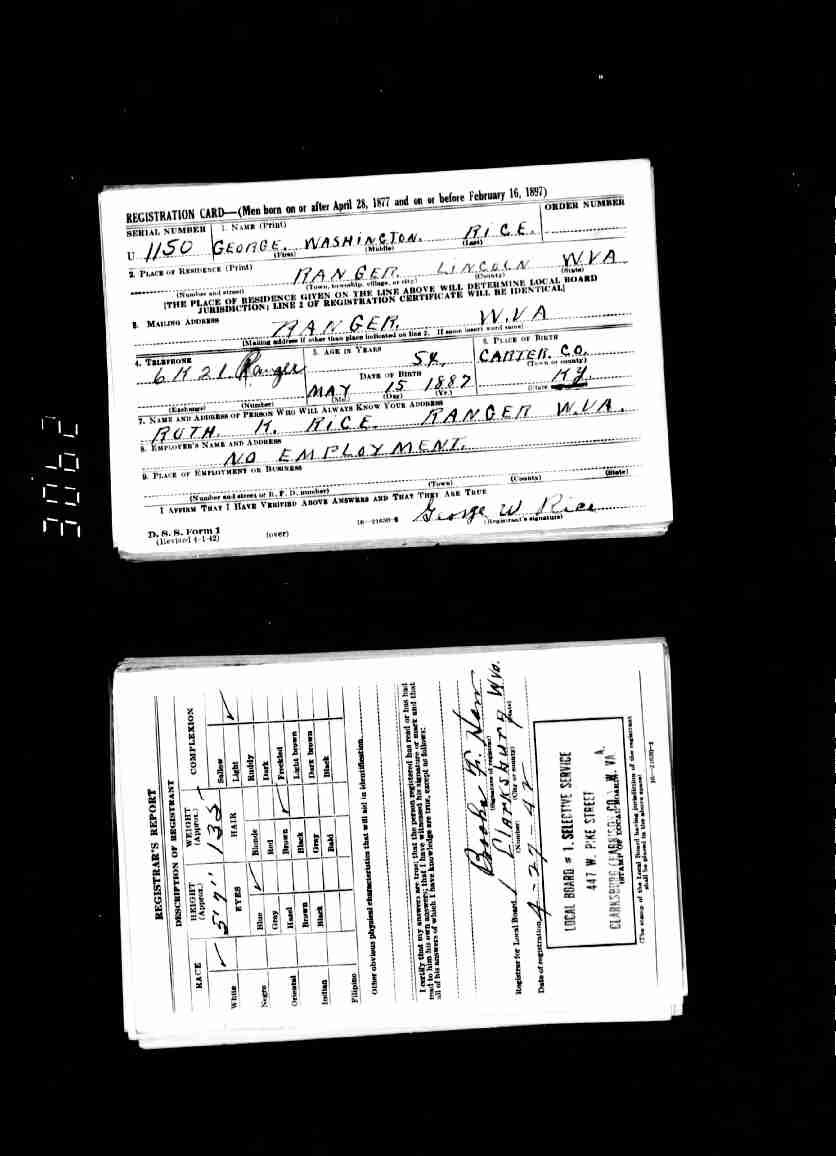 REGISTRATION CARD—(Men born on or after April 28, 1877 and on or before February 16, 1897)
SERIAL NUMBER 1. NAME (Print) ORDER NUMBER
U 1150 GEORGE WASHINGTON RICE
(First) (Middle) (Last)
2. PLACE OF RESIDENCE (Print)
RANGER LINCOLN W.VA
(Number and street) (Town, township, village, or city) (County) (State)
[THE PLACE OF RESIDENCE GIVEN ON THE LINE ABOVE WILL DETERMINE LOCAL BOARD
JURISDICTION; LINE 2 OF REGISTRATION CERTIFICATE WILL BE IDENTICAL]
3. MAILING ADDRESS
RANGER. W.VA
[Mailing address if other than place indicated on line 2. If same insert word same]
4. TELEPHONE 5. AGE IN YEARS 6. PLACE OF BIRTH
6 K 21 Ranger 54. CARTER. CO.
(Town or county)
DATE OF BIRTH
MAY 15 1887 KY.
(Exchange) (Number) (Mo.) (Day) (Yr.) (State
7. NAME AND ADDRESS OF PERSON WHO WILL ALWAYS KNOW YOUR ADDRESS
RUTH. K. RICE. RANGER W.VA.
8. EMPLOYER'S NAME AND ADDRESS
NO EMPLOYMENT.
9. PLACE OF EMPLOYMENT OR BUSINESS
(Number and street or R. F. D. number) (Town) (County) (State)
I AFFIRM THAT I HAVE VERIFIED ABOVE ANSWERS AND THAT THEY ARE TRUE
George W Rice
D. S. S. Form 1 16—21630-2 (Registrant's signature)
(Revised 4-1-42) (over)
3062
REGISTRAR'S REPORT
DESCRIPTION OF REGISTRANT
RACE HEIGHT (Approx.) WEIGHT (Approx.) COMPLEXION
5'7" 135
White ✓ EYES HAIR Sallow
Light ✓
Negro Blue ✓ Blonde Ruddy
Gray Red Dark
Oriental Hazel Brown ✓ Freckled
Brown Black Light brown
Indian Black Gray Dark brown
Bald Black
Filipino
Other obvious physical characteristics that will aid in identification
I certify that my answers are true; that the person registered has read or has had
read to him his own answers; that I have witnessed his signature or mark and that
all of his answers of which I have knowledge are true, except as follows:
(Signature of registrar)
Registrar for Local Board 1 Clarksburg W Va.
(Number) (City or county) (State)
Date of registration 4-27-42
LOCAL BOARD # 1, SELECTIVE SERVICE
447 W. PIKE STREET
CLARKSBURG W. VA.
(STAMP OF LOCAL BOARD)
(The stamp of the Local Board having jurisdiction of the registrant
shall be placed in the above space)
16—21630-2